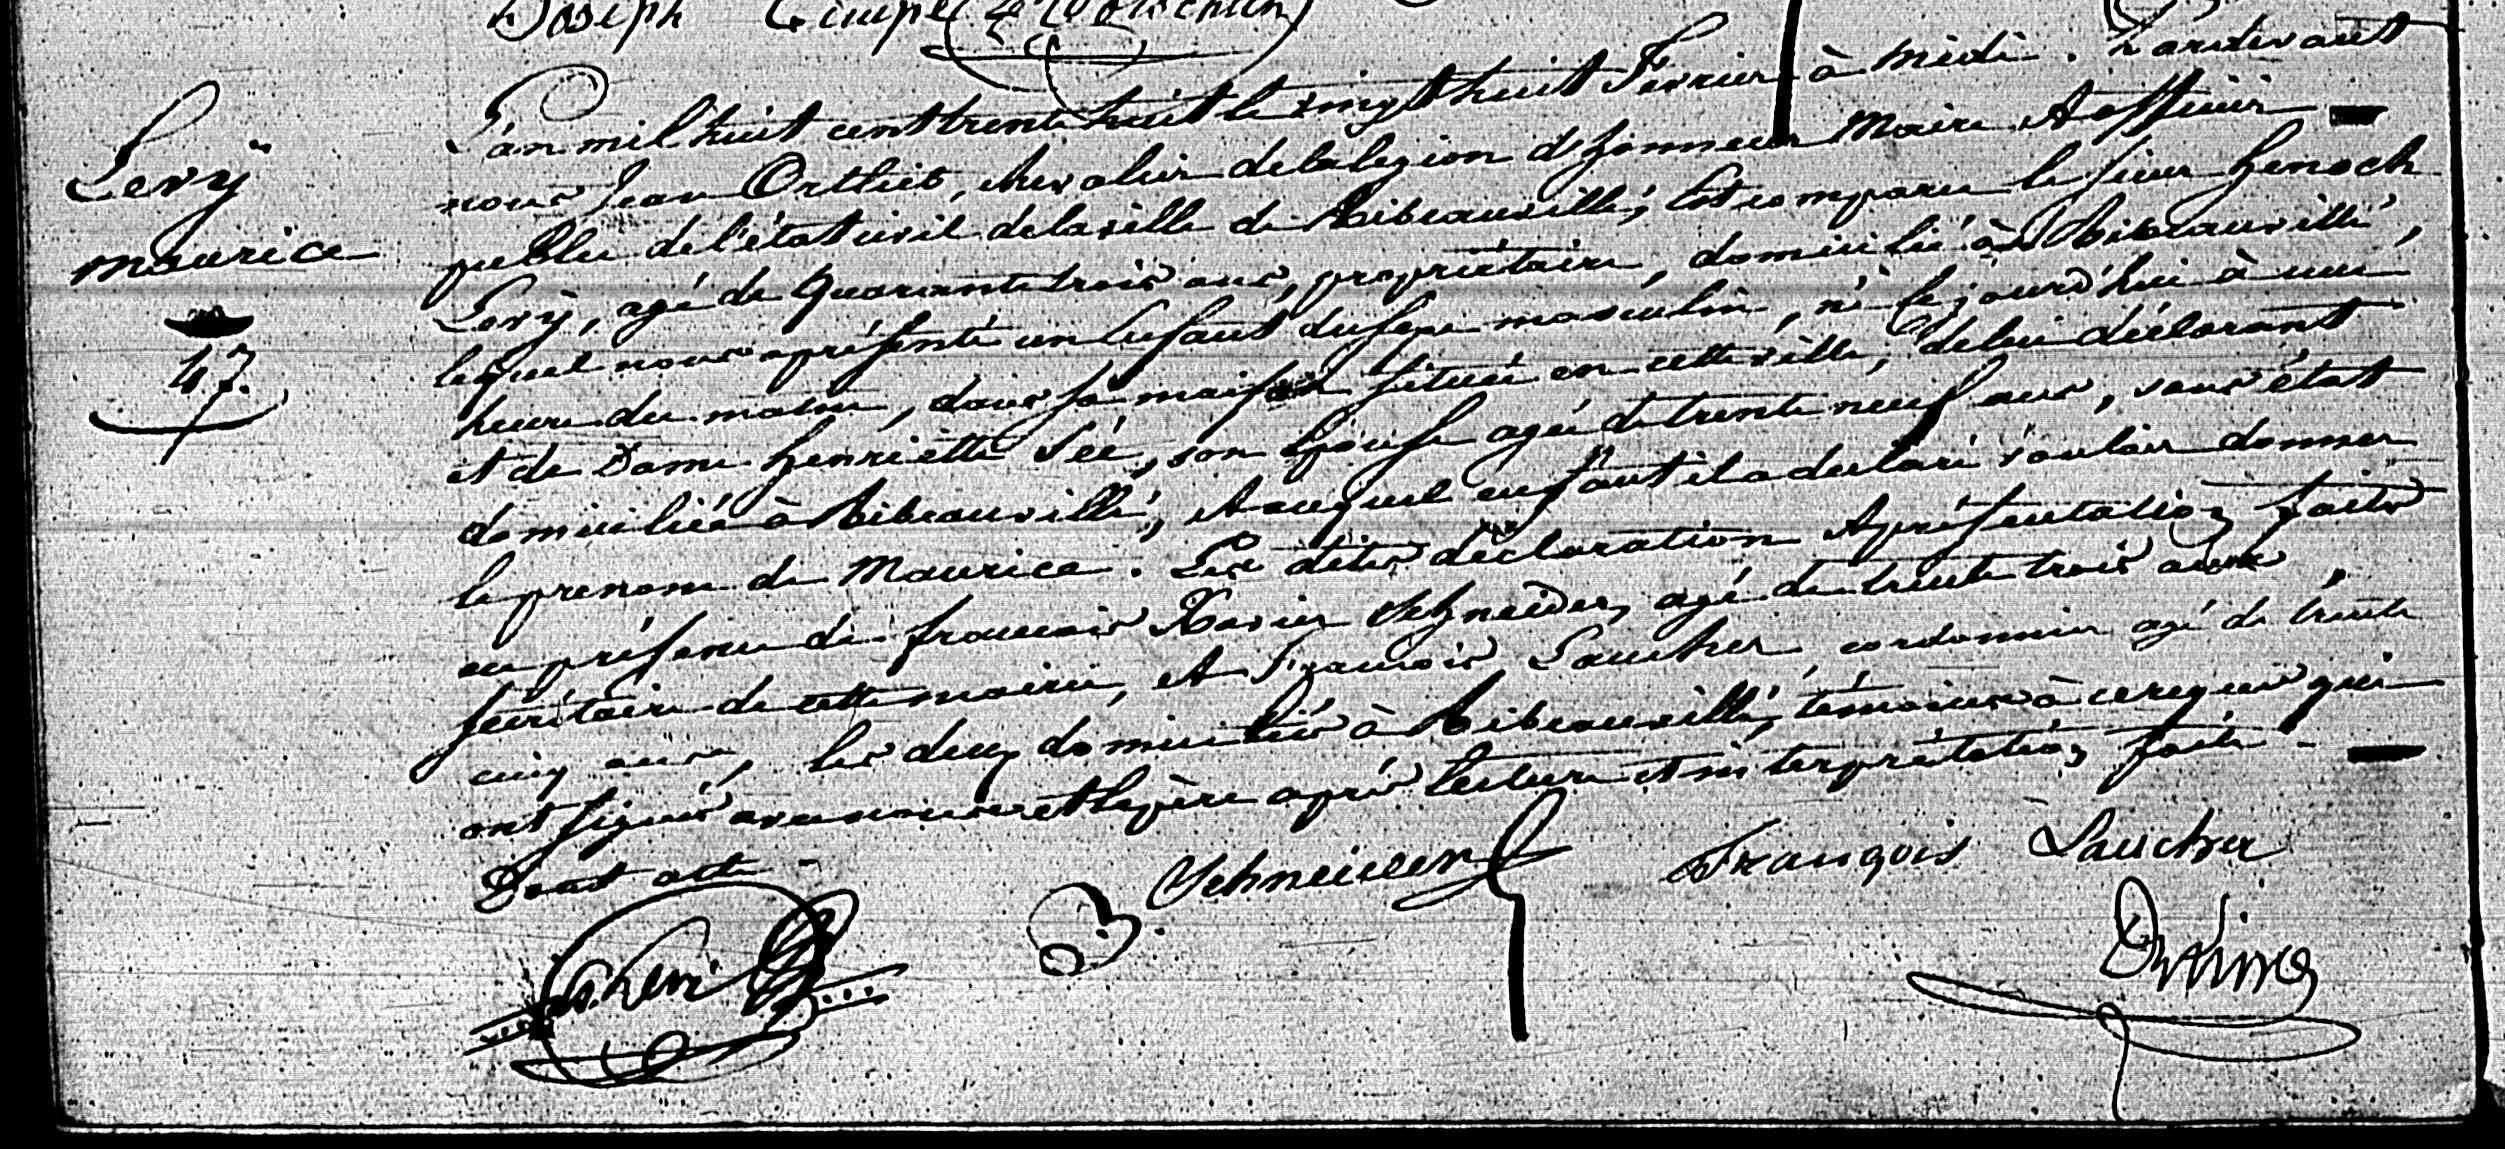 Joseph
Levÿ
Maurice
47.
L'an mil huit cent trente huit le vingt huit Fevrier à midi. Pardevant
nous Jean Ortlieb, chevalier de la legion d'honneur Maire et officier
public de l'état civil de la ville de Ribeauvillé, Est comparu le sieur henoch
Levÿ, agé de quarante trois ans, propriétaire, domicilié à Ribeauvillé,
lequel nous a présenté un Enfant du sexe masculin, né Cejourd'hui à une
heure du matin, dans sa maison située en cette ville, de lui déclarant
et de Dame henriette Sée, son Epouse agée de trente neuf ans, sans état
domiciliée à Ribeauvillé, et auquel enfant il a declaré vouloir donner
le prenom de Maurice. Les dites déclaration et présentation faites
en présence de francois Xavier Schneider, agé de trente trois ans,
secrétaire de cette mairie, et François Laucher cordonnier agé de trente
cinq ans, les deux domiciliés à Ribeauvillé, témoins à ce requis qui
ont signés avec nous et le père après lecture et interprétation faite.
Dont acte
Schneider
François Laucher
Levi
Ortlieb